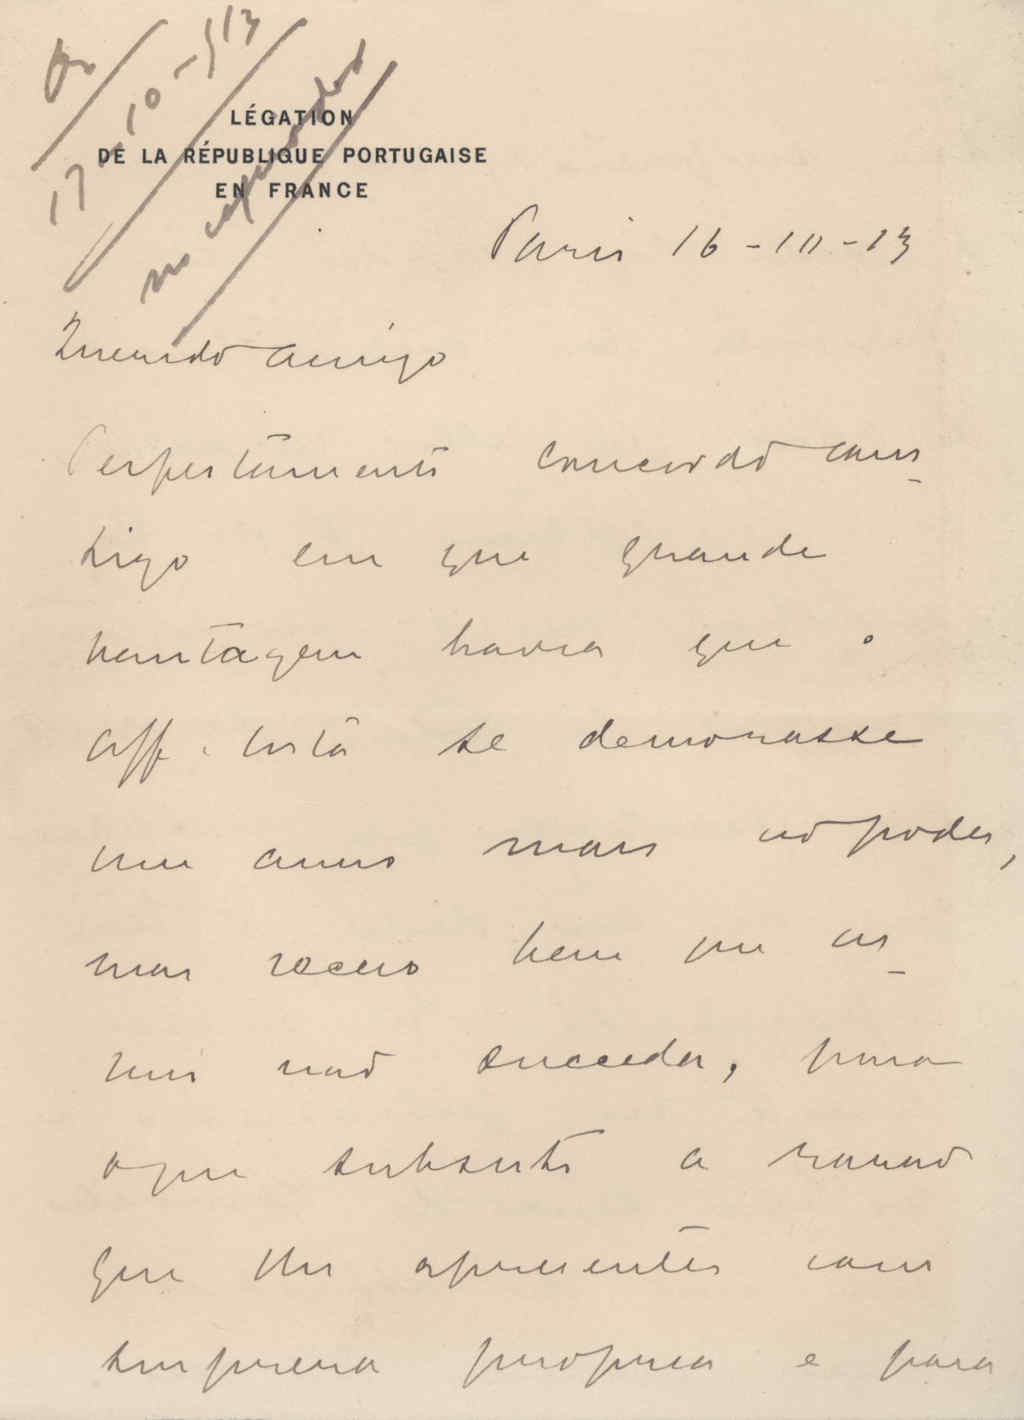 17-10-913
LÉGATION
DE LA RÉPUBLIQUE PORTUGAISE
EN FRANCE
Paris 16-10-13
Querido amigo
Perfeitamente concordo com-
tigo em que grande
vantagem havia que o
Aff. Costa se demorasse
um anno mais no poder,
mas receio bem que as-
sim não succeda, para
o que subsiste a razão
que lhes apresentes com
surpreza propria e para